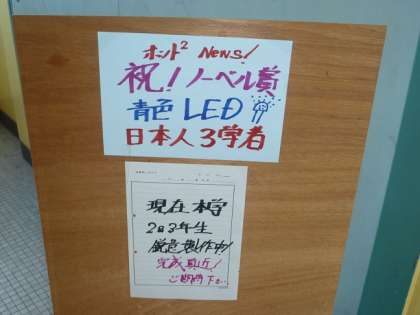 ホット² News!
祝!ノーベル賞
青色LED
日本人3学者
現在本学
2年生
鋭意製作中!
完成真近!
ご期待下さい